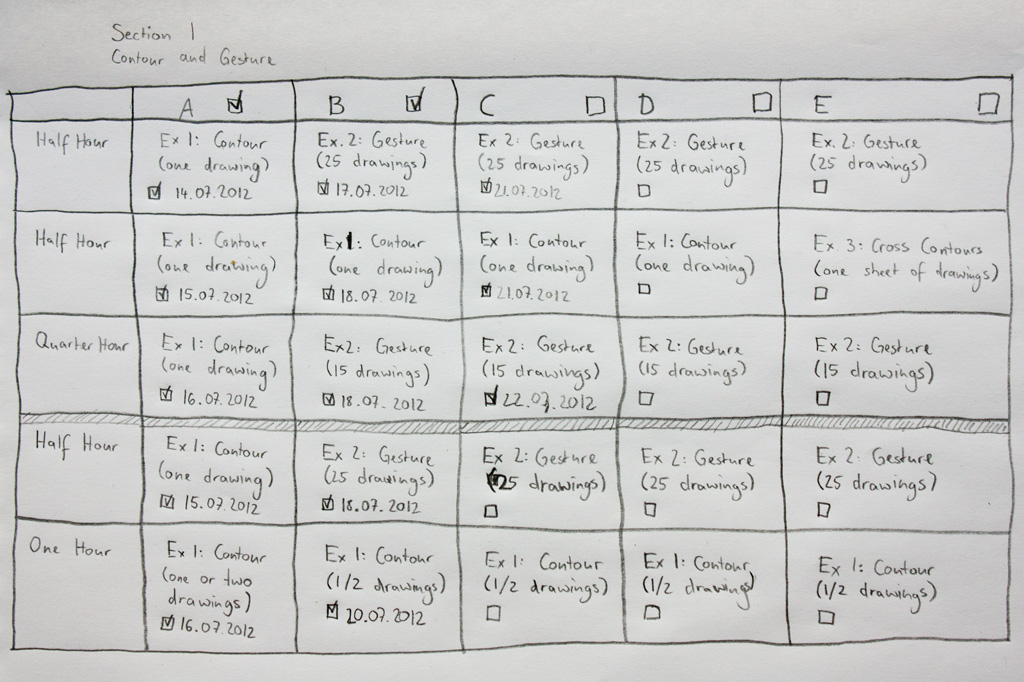 Section 1
Contour and Gesture
A B C D E
Half Hour
Ex 1: Contour
(one drawing)
14.07.2012
Ex. 2: Gesture
(25 drawings)
17.07.2012
Ex 2: Gesture
(25 drawings)
21.07.2012
Ex 2: Gesture
(25 drawings)
Ex. 2: Gesture
(25 drawings)
Half Hour
Ex 1: Contour
(one drawing)
15.07.2012
Ex 1: Contour
(one drawing)
18.07.2012
Ex 1: Contour
(one drawing)
21.07.2012
Ex 1: Contour
(one drawing)
Ex. 3: Cross Contours
(one sheet of drawings)
Quarter Hour
Ex 1: Contour
(one drawing)
16.07.2012
Ex2: Gesture
(15 drawings)
18.07.2012
Ex 2: Gesture
(15 drawings)
22.07.2012
Ex 2: Gesture
(15 drawings)
Ex 2: Gesture
(15 drawings)
Half Hour
Ex 1: Contour
(one drawing)
15.07.2012
Ex 2: Gesture
(25 drawings)
18.07.2012
Ex 2: Gesture
(25 drawings)
Ex 2: Gesture
(25 drawings)
Ex 2: Gesture
(25 drawings)
One Hour
Ex 1: Contour
(one or two
drawings)
16.07.2012
Ex 1: Contour
(1/2 drawings)
20.07.2012
Ex 1: Contour
(1/2 drawings)
Ex 1: Contour
(1/2 drawings)
Ex 1: Contour
(1/2 drawings)